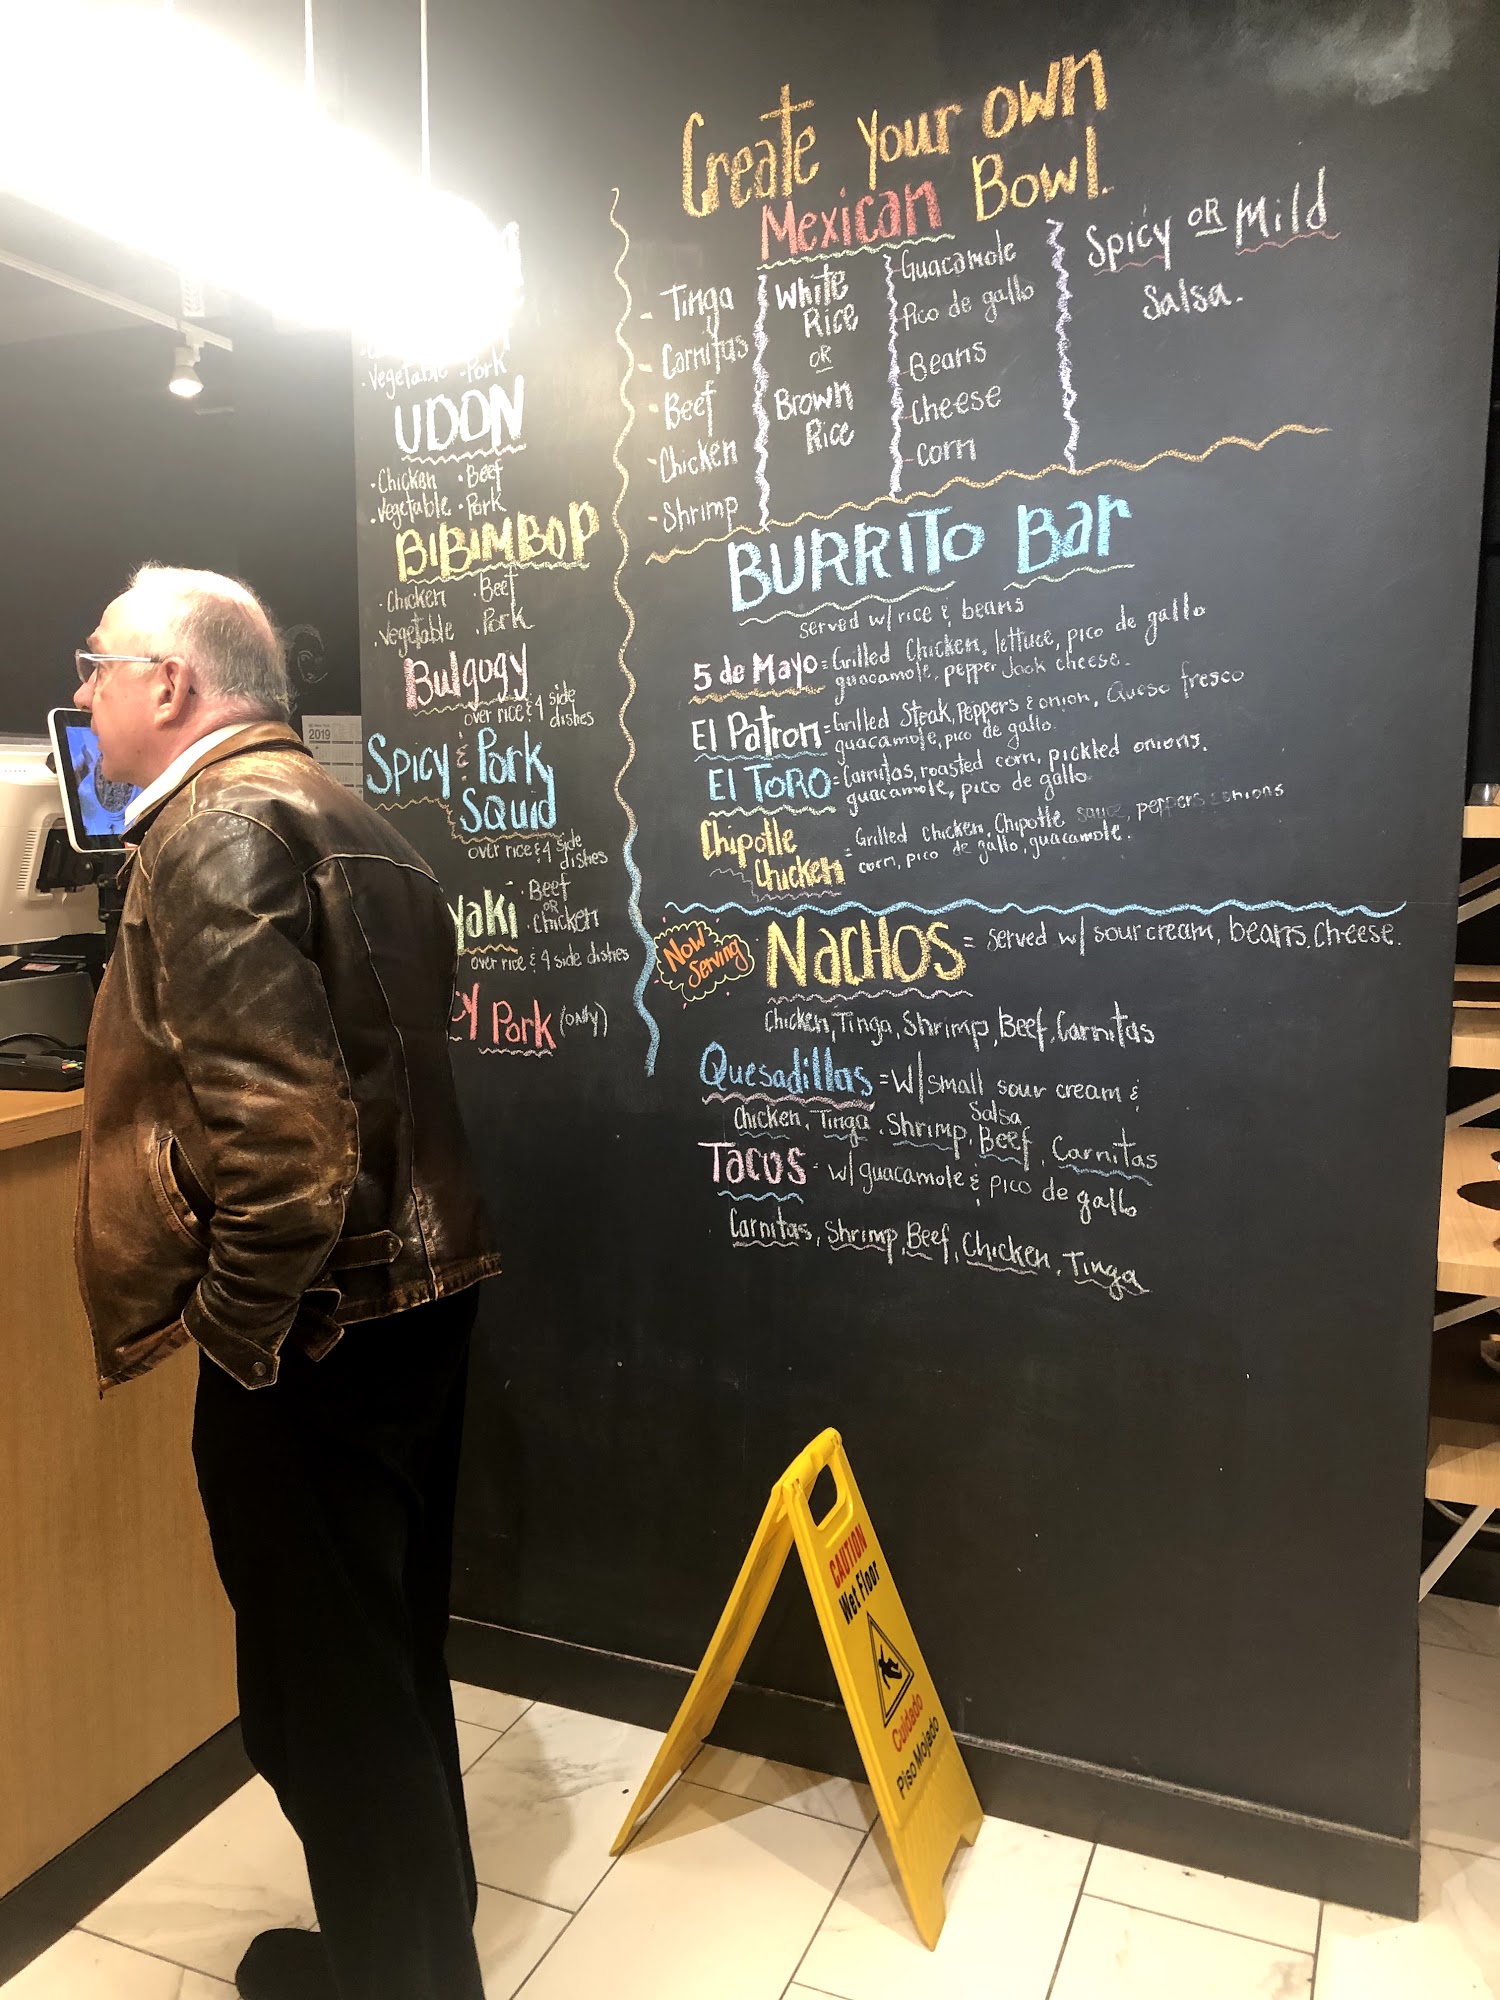 Create Your Own
Mexican Bowl.
- Tinga
- Carnitas
- Beef
- Chicken
- Shrimp
White
Rice
OR
Brown
Rice
- Guacamole
- Pico de gallo
- Beans
- Cheese
- Corn
Spicy OR Mild
Salsa.
BURRITO Bar
served w/ rice & beans
5 de Mayo = Grilled Chicken, lettuce, pico de gallo
guacamole, pepper Jack cheese.
El Patron = Grilled Steak, Peppers & onion, Queso fresco
guacamole, pico de gallo.
El TORO = Carnitas, roasted corn, pickled onions.
guacamole, pico de gallo
Chipotle
Chicken = Grilled chicken, Chipotle sauce, peppers & onions
corn, pico de gallo, guacamole.
Now
Serving
NacHOS = served w/ sour cream, beans, cheese.
Chicken, Tinga, Shrimp, Beef, Carnitas
Quesadillas = w/ small sour cream &
Salsa
Chicken, Tinga, Shrimp, Beef, Carnitas
Tacos - w/ guacamole & pico de gallo
Carnitas, Shrimp, Beef, Chicken, Tinga
. Vegetable . Pork
UDON
. Chicken . Beef
. Vegetable . Pork
BiBiMBOP
. Chicken . Beef
. Vegetable . Pork
Bulgogy
over rice & 4 side
dishes
Spicy & Pork
Squid
over rice & 4 side
dishes
yaki . Beef
OR
. Chicken
over rice & 4 side dishes
cy Pork (only)
2019
CAUTION
Wet Floor
Cuidado
Piso Mojado